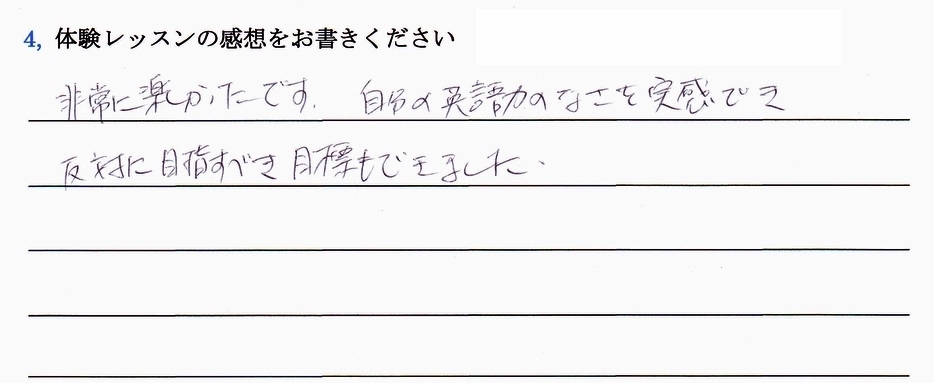 4, 体験レッスンの感想をお書きください
非常に楽しかったです. 自分の英語力のなさを実感でき
反対に目指すべき目標もできました.